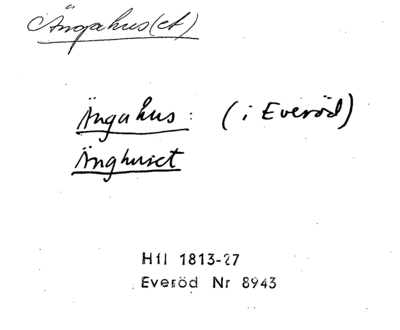 Ängahus(et)
Ängahus: (i Everöd)
Änghuset
Hfl 1813-27
Everöd Nr 8943